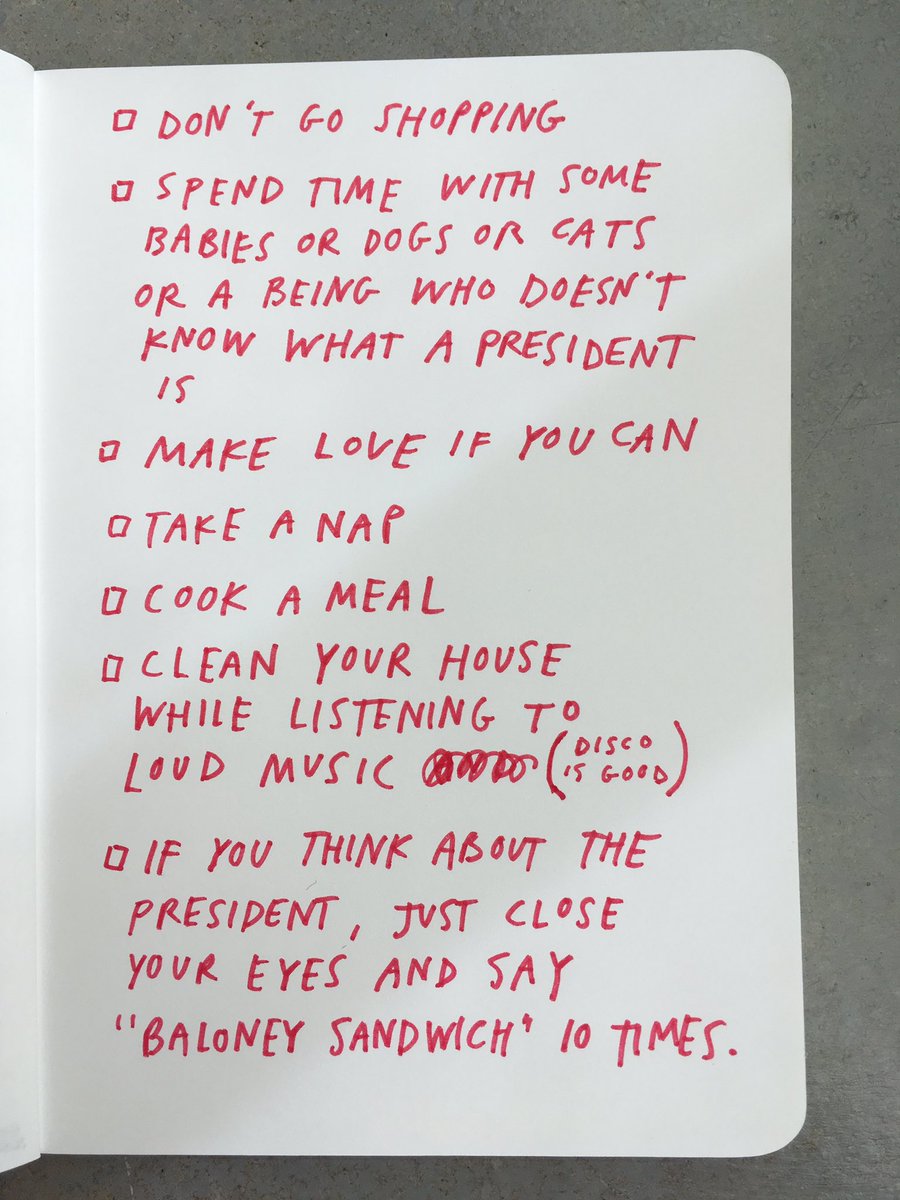 □ DON'T GO SHOPPING
□ SPEND TIME WITH SOME
BABIES OR DOGS OR CATS
OR A BEING WHO DOESN'T
KNOW WHAT A PRESIDENT
IS
□ MAKE LOVE IF YOU CAN
□ TAKE A NAP
□ COOK A MEAL
□ CLEAN YOUR HOUSE
WHILE LISTENING TO
LOUD MUSIC (DISCO
IS GOOD)
□ IF YOU THINK ABOUT THE
PRESIDENT, JUST CLOSE
YOUR EYES AND SAY
"BALONEY SANDWICH" 10 TIMES.